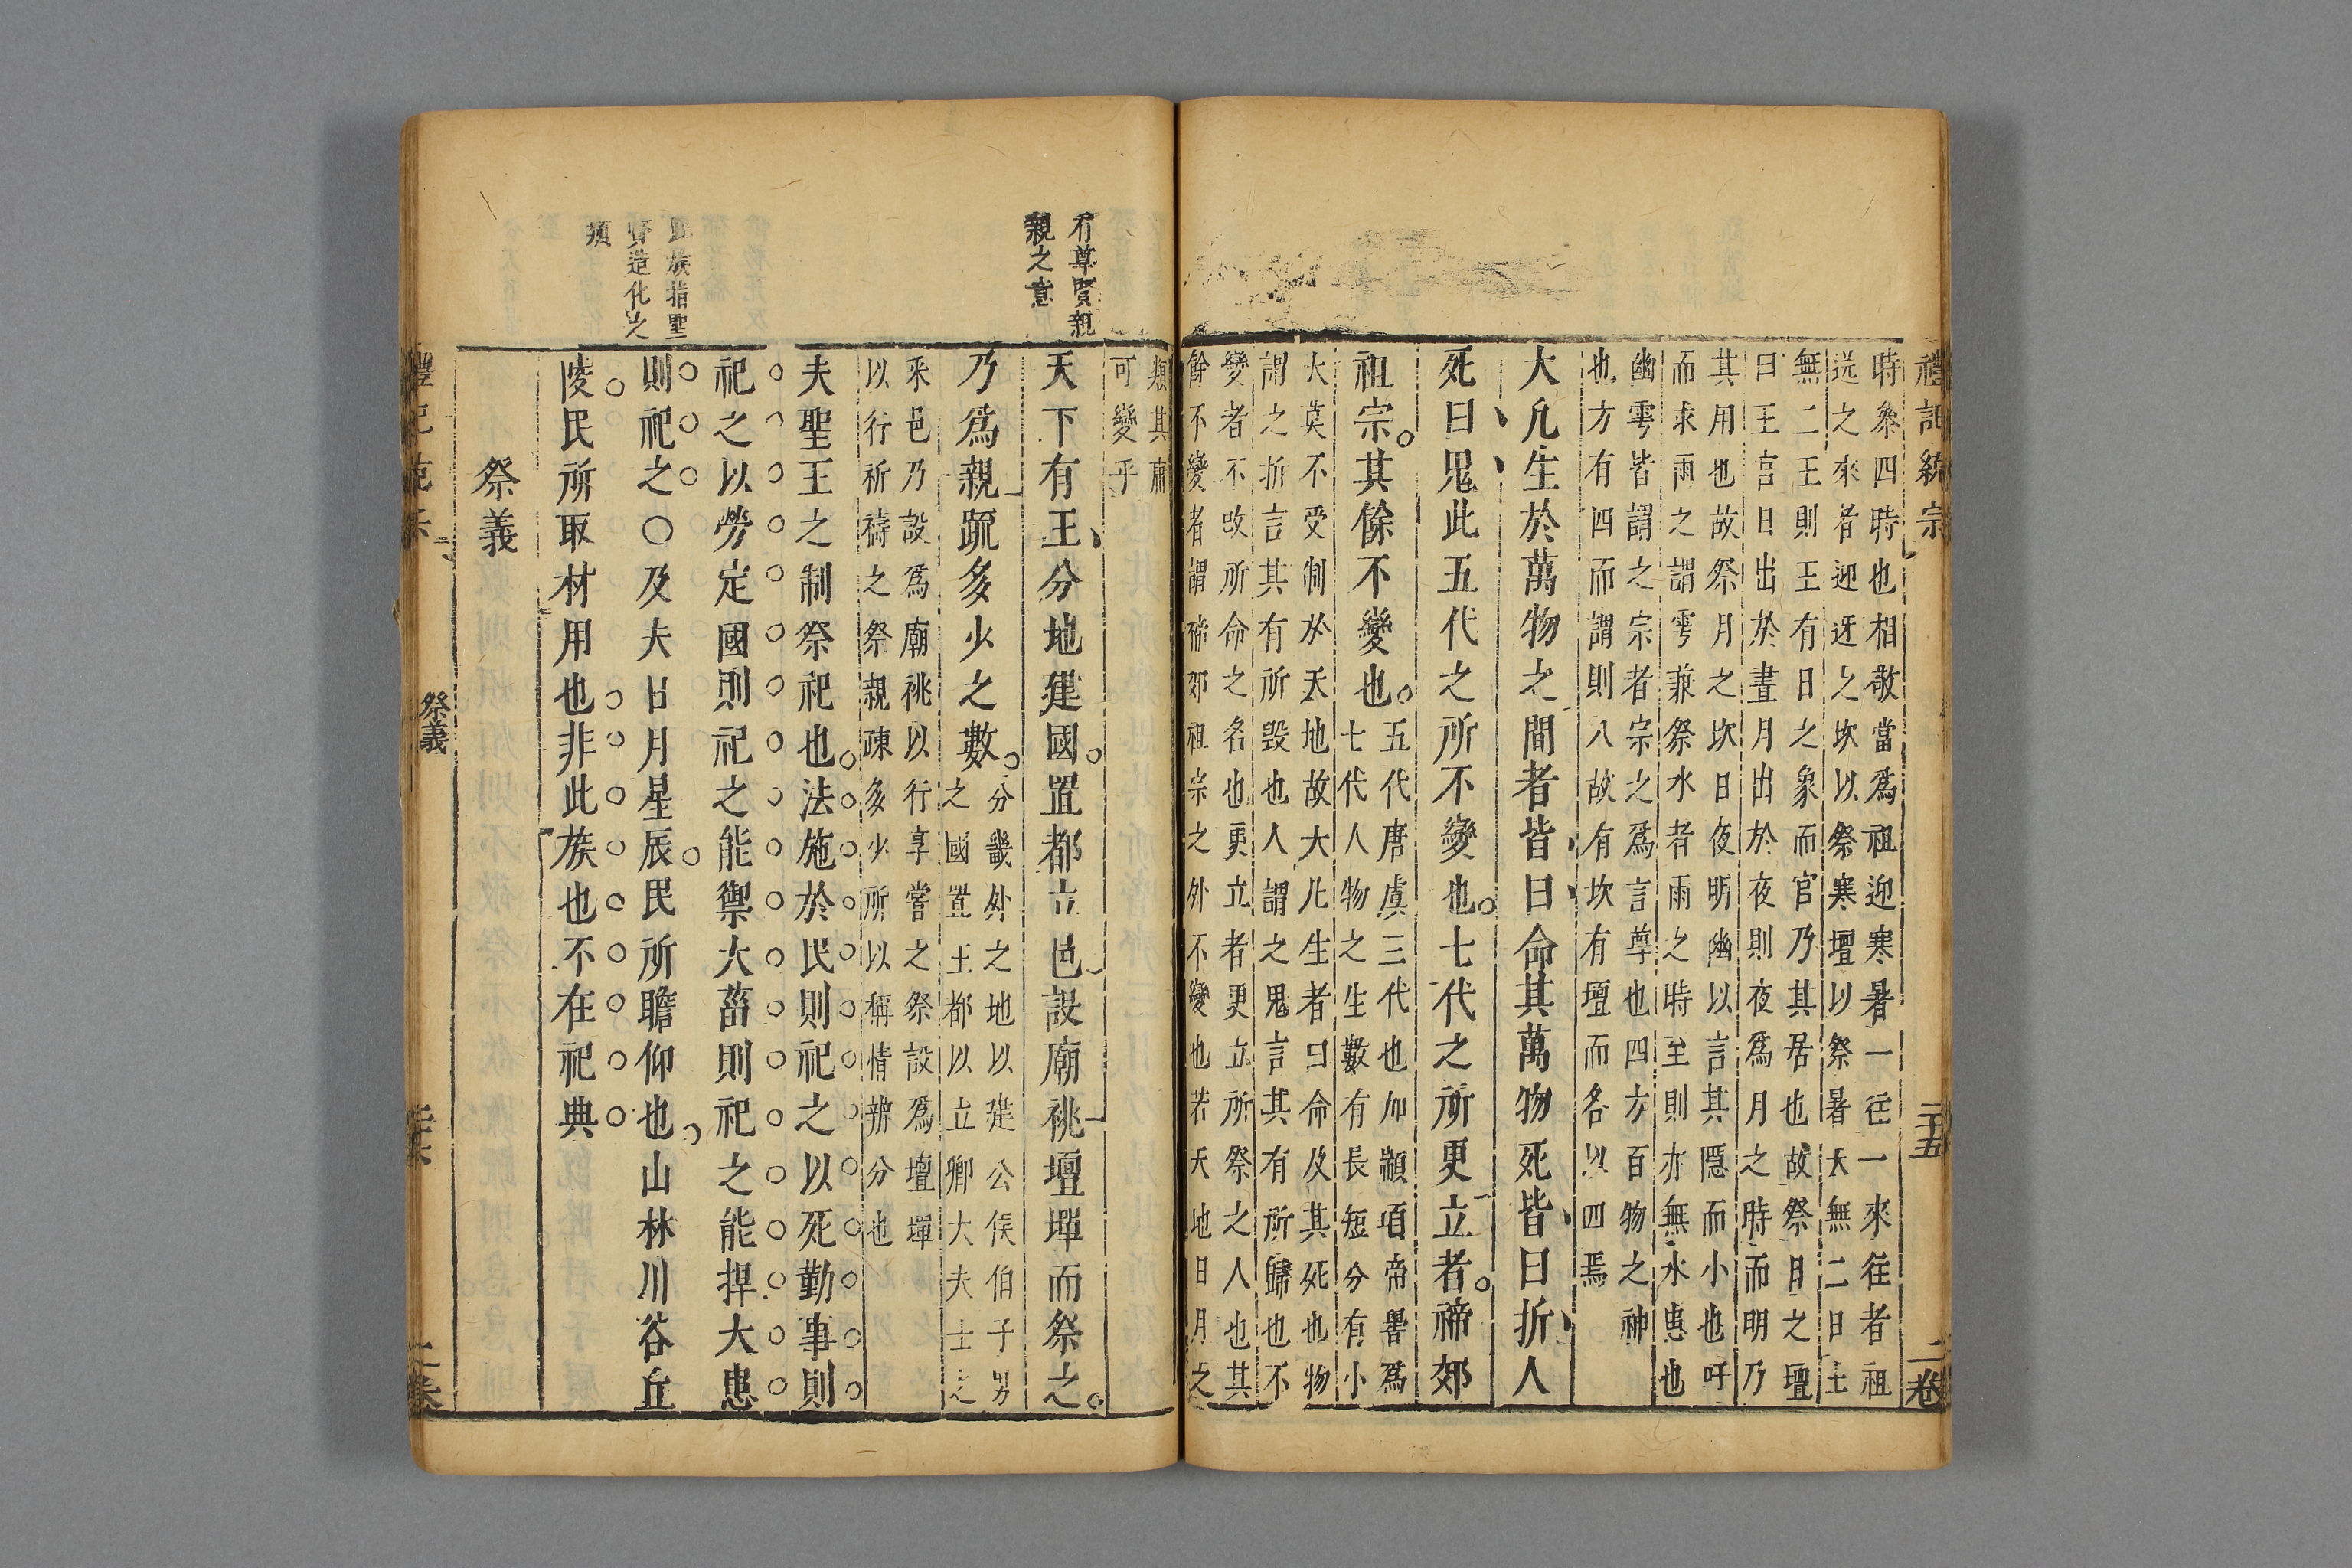 禮記統宗
二十五
二卷
時祭四時也相敬當爲祖迎寒暑一往一來往者祖
送之來者迎迓之坎以祭寒壇以祭暑天無二日土
無二王則王有日之象而官乃其居也故祭日之壇
曰王宫日出於晝月出於夜則夜爲月之時而明乃
其用也故祭月之坎曰夜明幽以言其隱而小也吁
而求雨之謂雩兼祭水者雨之時至則亦無水患也
幽雩皆謂之宗者宗之爲言尊也四方百物之神
也方有四而謂則八故有坎有壇而各以四焉
大凡生於萬物之間者皆曰命其萬物死皆曰折人
死曰鬼此五代之所不變也七代之所更立者禘郊
祖宗其餘不變也
五代唐虞三代也加顓頊帝嚳爲
七代人物之生數有長短分有小
大莫不受制於天地故大凡生者曰命及其死也物
謂之折言其有所毀也人謂之鬼言其有所歸也不
變者不改所命之名也更立者更立所祭之人也其
餘不變者謂禘郊祖宗之外不變也若天地日月之
類其庸
可變乎
有尊賢親
親之意
天下有王分地建國置都立邑設廟祧壇墠而祭之
乃爲親䟽多少之數
分畿外之地以建公侯伯子男
之國置王都以立卿大夫士之
采邑乃設爲廟祧以行享嘗之祭設爲壇墠
以行祈禱之祭親疎多少所以稱情辨分也
夫聖王之制祭祀也法施於民則祀之以死勤事則
祀之以勞定國則祀之能禦大菑則祀之能捍大患
此族指聖
賢造化之
類
則祀之○及夫日月星辰民所瞻仰也山林川谷丘
陵民所取材用也非此族也不在祀典
祭義
祭義
二卷